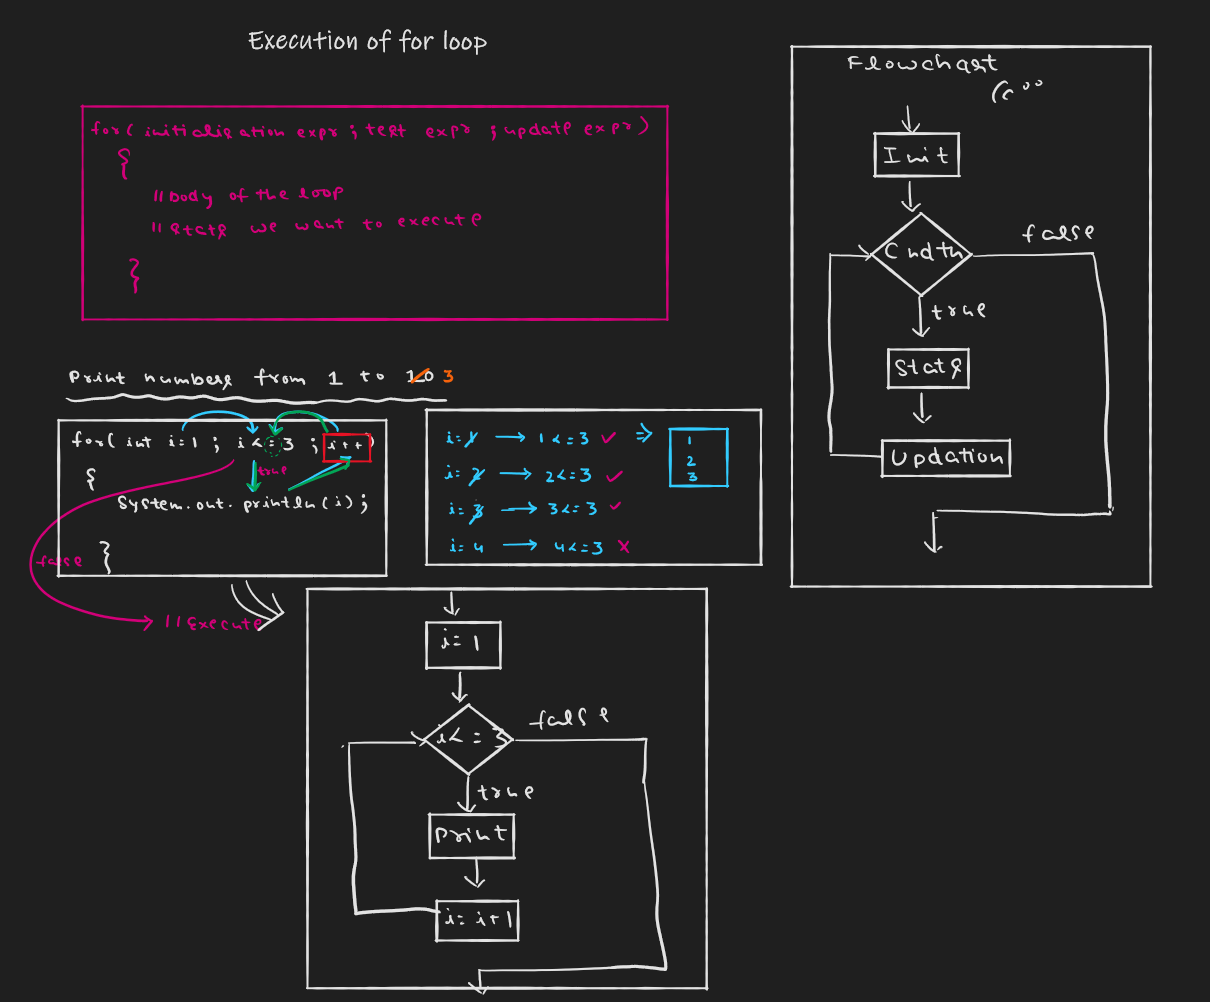 Execution of for loop
for( initialization expr ; test expr ; update expr)
{
//Body of the loop
//State we want to execute
}
Print numbers from 1 to 10 3
for( int i=1 ; i<=3 ; i++)
{
true
System.out.println(i);
false
}
//Execute
i=1 → 1<=3 ✓ ⇒
i=2 → 2<=3 ✓
i=3 → 3<=3 ✓
i=4 → 4<=3 x
1
2
3
i=1
i<=3
false
true
Print
i=i+1
Flowchart
Init
Cndtn
false
true
State
Updation